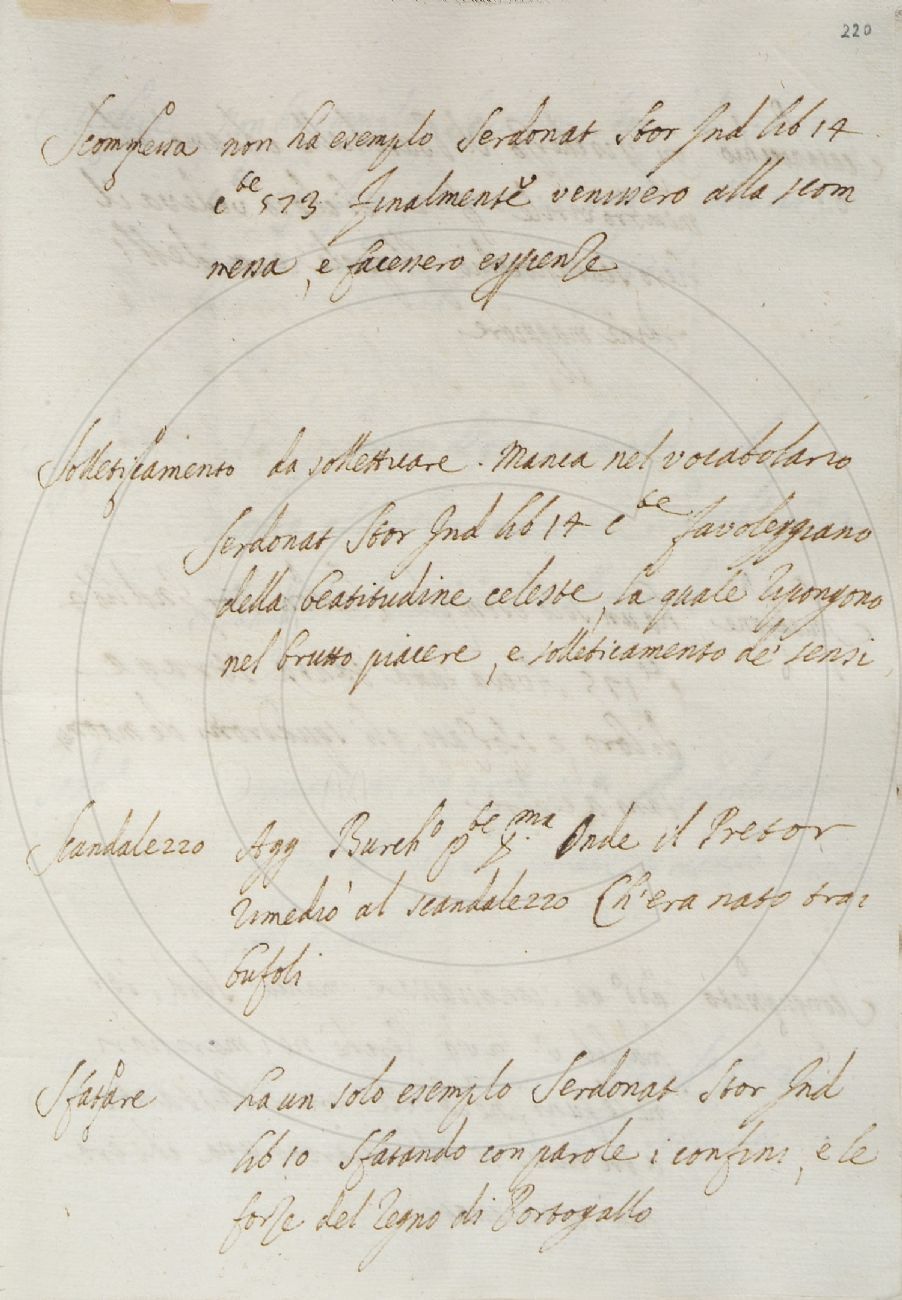 220
Scommessa non ha esempio Serdonat Stor Ind lib 14
c.te 573 Finalmente venissero alla scom
messa, e facessero esperienze
Solleticamento da solletticare. Manca nel vocabolario
Serdonat Stor Ind lib 14 c.te favoleggiano
della beatitudine celeste, la quale ripongono
nel brutto piacere, e solleticamento de' sensi
Scandalezzo Agg Burch.o p.te p.ma Onde il Pretor
rimediò al scandalezzo Ch'era nato trai
bufoli
Sfatare ha un solo esempio Serdonat Stor Ind
lib 10 Sfatando con parole i confini, e le
forze del regno di Portogallo